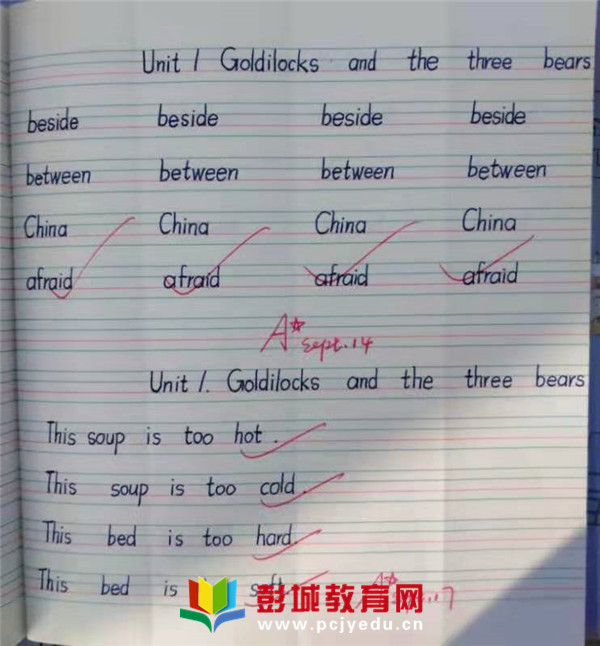 Unit 1 Goldilocks and the three bears
beside beside beside beside
between between between between
China China China China
afraid afraid afraid afraid
A Sept.14
Unit 1. Goldilocks and the three bears
This soup is too hot.
This soup is too cold.
This bed is too hard.
This bed is soft
17
彭城教育网
www.pcjyedu.cn